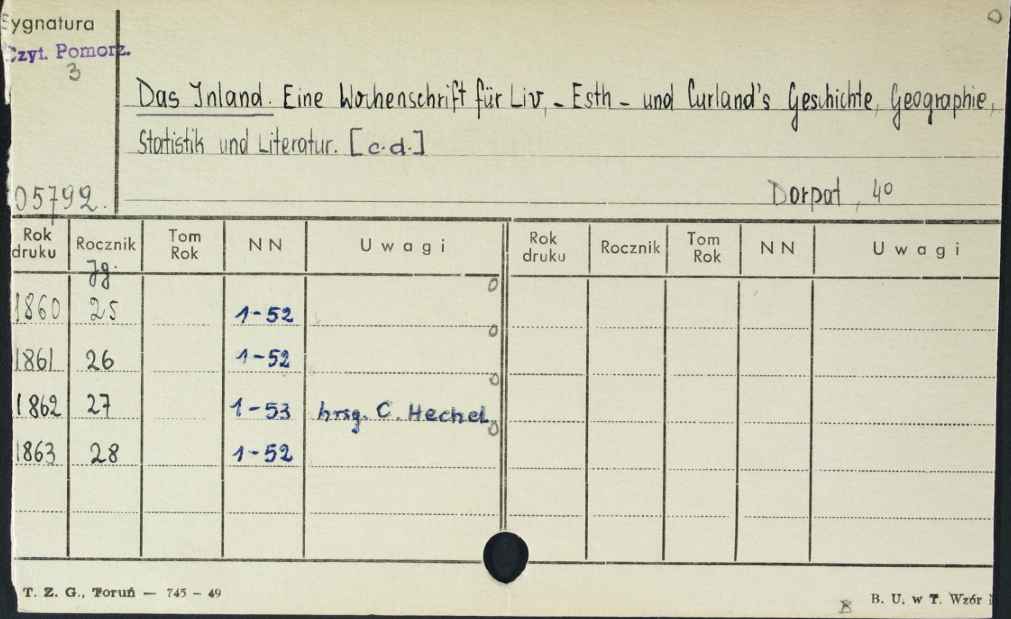 Sygnatura
Czyt. Pomorz.
3
Das Inland. Eine Wochenschrift für Liv, - Esth - und Curland's Geschichte, Geographie,
Statistik und Literatur. [c.d.]
05792.
Dorpat, 4o
Rok druku Rocznik Tom Rok NN Uwagi Rok druku Rocznik Tom Rok NN Uwagi
Jg.
1860 25 1-52
1861 26 1-52
1862 27 1-53 hrsg. C. Hechel
1863 28 1-52
T. Z. G., Toruń — 745 - 49
B. U. w T. Wzór